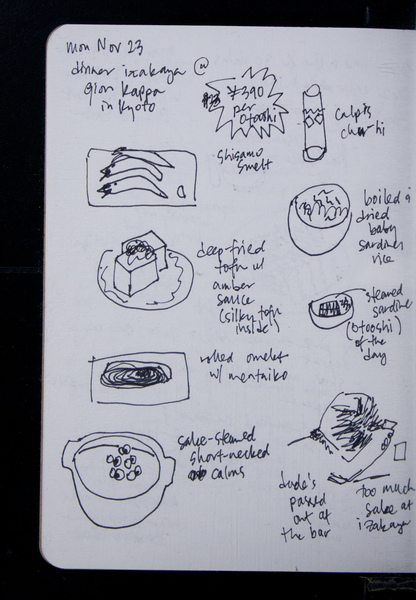 mon Nov 23
dinner izakaya @
gion kappa
in kyoto
¥390
per
otoshi
calpis
chu-hi
shisamo
smelt
boiled &
dried
baby
sardines
rice
deep-fried
tofu w/
amber
sauce
(silky tofu
inside!)
steamed
sardine
(otooshi)
of the
day
rolled omelet
w/ mentaiko
sake-steamed
short-necked
calms
dude's
passed
out at
the bar
too much
sake at
izakaya